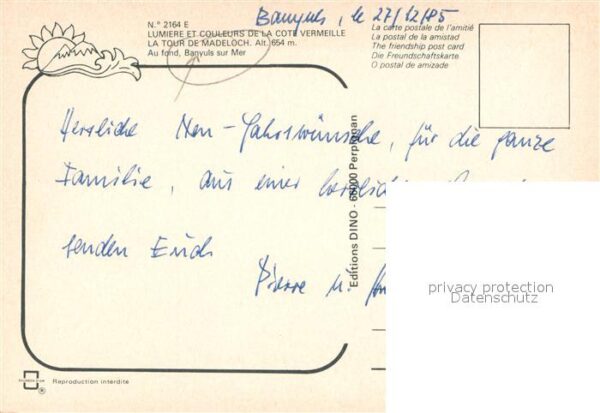 Banyuls, le 27/12/85
N.° 2164 E
LUMIERE ET COULEURS DE LA COTE VERMEILLE
LA TOUR DE MADELOCH. Alt. 654 m.
Au fond, Banyuls sur Mer
La carte postale de l'amitié
La postal de la amistad
The friendship post card
Die Freundschaftskarte
O postal de amizade
Herzliche Neu-Jahrswünsche, für die ganze
Familie, aus einer
senden Euch
Pierre u.
Editions DINO - 66000 Perpignan
privacy protection
Datenschutz
Reproduction interdite